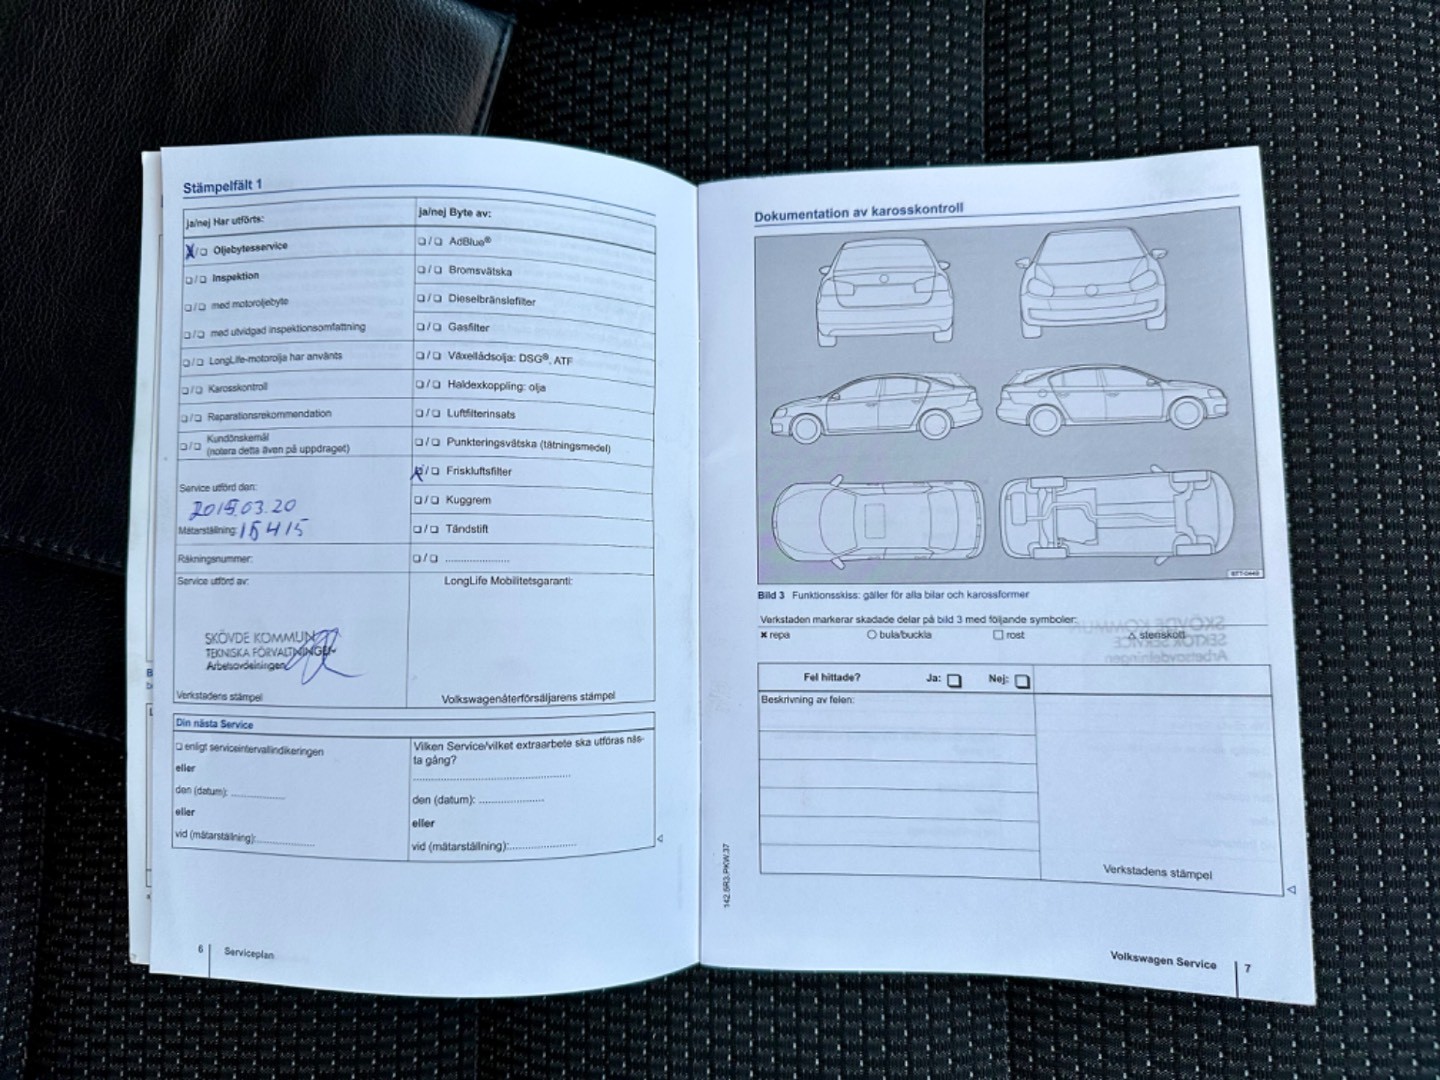 Stämpelfält 1
ja/nej Har utförts:
X/❏ Oljebytesservice
❏/❏ Inspektion
❏/❏ med motoroljebyte
❏/❏ med utvidgad inspektionsomfattning
❏/❏ LongLife-motorolja har använts
❏/❏ Karosskontroll
❏/❏ Reparationsrekommendation
❏/❏ Kundönskemål
(notera detta även på uppdraget)
Service utförd den:
Mätarställning:
Räkningsnummer:
Service utförd av:
SKÖVDE KOMMUN
TEKNISKA FÖRVALTNINGEN
Arbetsavdelningen
Verkstadens stämpel
ja/nej Byte av:
❏/❏ AdBlue®
❏/❏ Bromsvätska
❏/❏ Dieselbränslefilter
❏/❏ Gasfilter
❏/❏ Växellådsolja: DSG®, ATF
❏/❏ Haldexkoppling: olja
❏/❏ Luftfilterinsats
❏/❏ Punkteringsvätska (tätningsmedel)
X/❏ Friskluftsfilter
❏/❏ Kuggrem
❏/❏ Tändstift
❏/❏ ......................
LongLife Mobilitetsgaranti:
Volkswagenåterförsäljarens stämpel
Din nästa Service
❏ enligt serviceintervallindikeringen
eller
den (datum): ..................
eller
vid (mätarställning):...................
Vilken Service/vilket extraarbete ska utföras näs-
ta gång?
............................................
den (datum): ......................
eller
vid (mätarställning):.......................
6 Serviceplan
Dokumentation av karosskontroll
Bild 3 Funktionsskiss: gäller för alla bilar och karossformer
Verkstaden markerar skadade delar på bild 3 med följande symboler:
✖ repa ○ bula/buckla □ rost △ stenskott
Fel hittade? Ja: ❏ Nej: ❏
Beskrivning av felen:
Verkstadens stämpel
142.5R3.PKW.37
Volkswagen Service 7